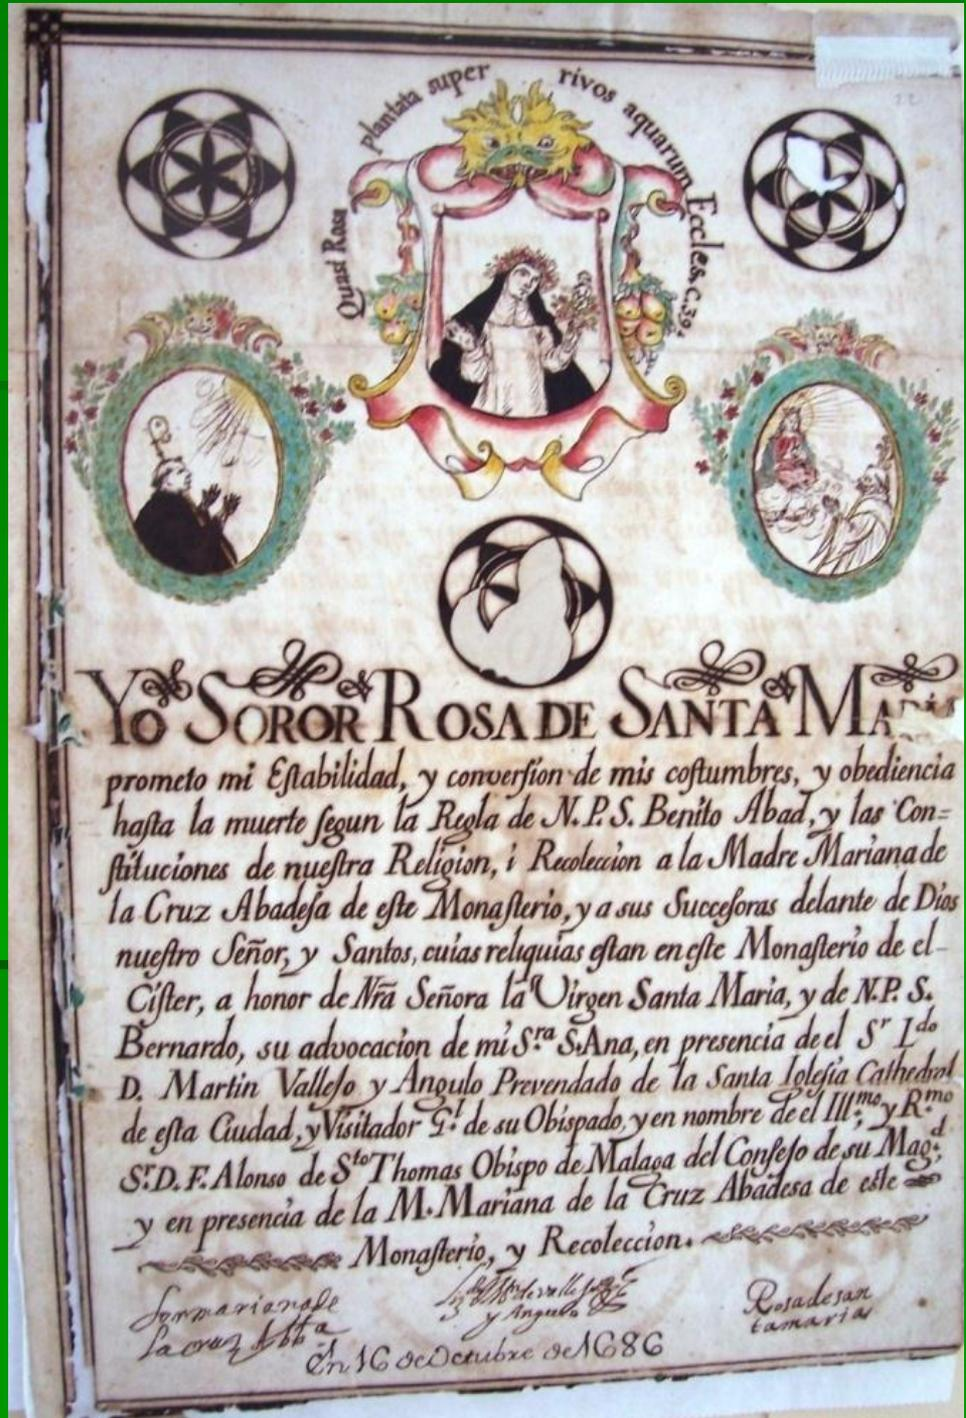 Quasi Rosa plantata super rivos aquarum Eccles. C. 39.
22
YO SOROR ROSA DE SANTA MARIA
prometo mi Estabilidad, y conversion de mis costumbres, y obediencia
hasta la muerte segun la Regla de N.P.S. Benito Abad, y las Con=
stituciones de nuestra Religion, i Recoleccion a la Madre Mariana de
la Cruz Abadesa de este Monasterio, y a sus Successoras delante de Dios
nuestro Señor, y Santos, cuias reliquias estan en este Monasterio de el-
Cister, a honor de Nrã Señora la Virgen Santa Maria, y de N.P.S.
Bernardo, su advocacion de mi S.ra S.Ana, en presencia de el Sr Ldo
D. Martin Vallejo y Angulo Prevendado de la Santa Iglesia Cathedral
de esta Ciudad, y Visitador G.l de su Obispado, y en nombre de el Ill.mo, y R.mo
Sr. D. F. Alonso de Sto Thomas Obispo de Malaga del Consejo de su Mag.d,
y en presencia de la M. Mariana de la Cruz Abadesa de este
Monasterio, y Recoleccion.
Sor mariana de
la cruz Abba
de vallejo
y Angulo
Rosa de san
ta maria
En 16 de Octubre de 1686